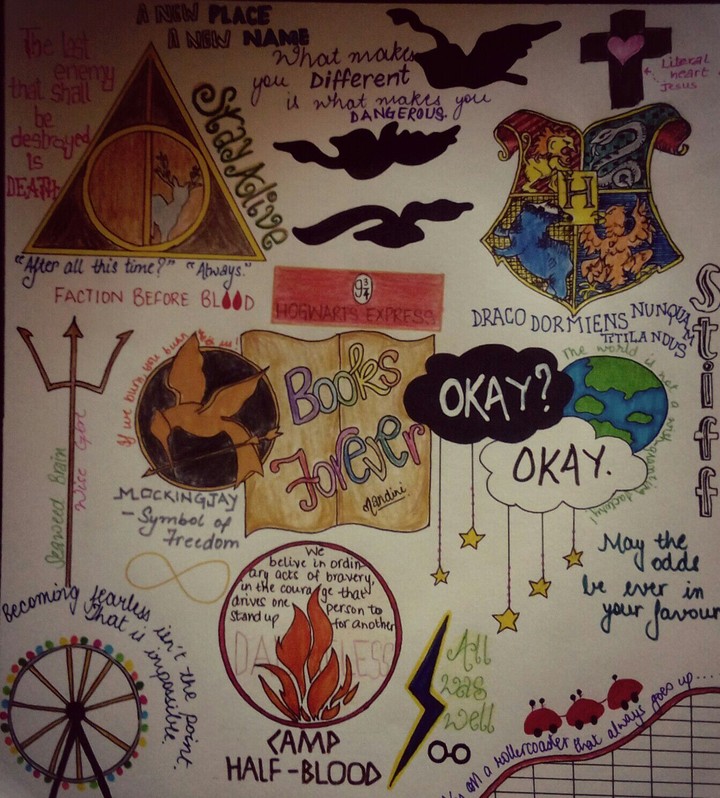 A NEW PLACE
A NEW NAME
The last
enemy
that shall
be
destroyed
is
DEATH
Stay Alive
What makes
you Different
is what makes you
DANGEROUS.
Literal
heart
Jesus
H
"After all this time?" "Always."
FACTION BEFORE BLOOD
9 3/4
HOGWARTS EXPRESS
DRACO DORMIENS NUNQUAM
TITILANDUS
Stiff
If we burn you burn with us!
MOCKINGJAY
- Symbol of
Freedom
Books
Forever
Nandini
OKAY?
OKAY.
The world is not a wish-granting factory!
Seaweed Brain
Wise Girl
May the
odds
be ever in
your favour
Becoming fearless isn't the point.
That is impossible.
We
believe in ordin-
ary acts of bravery,
in the courage that
drives one person to
stand up for another
CAMP
HALF-BLOOD
All
was
well
on a rollercoaster that always goes up....